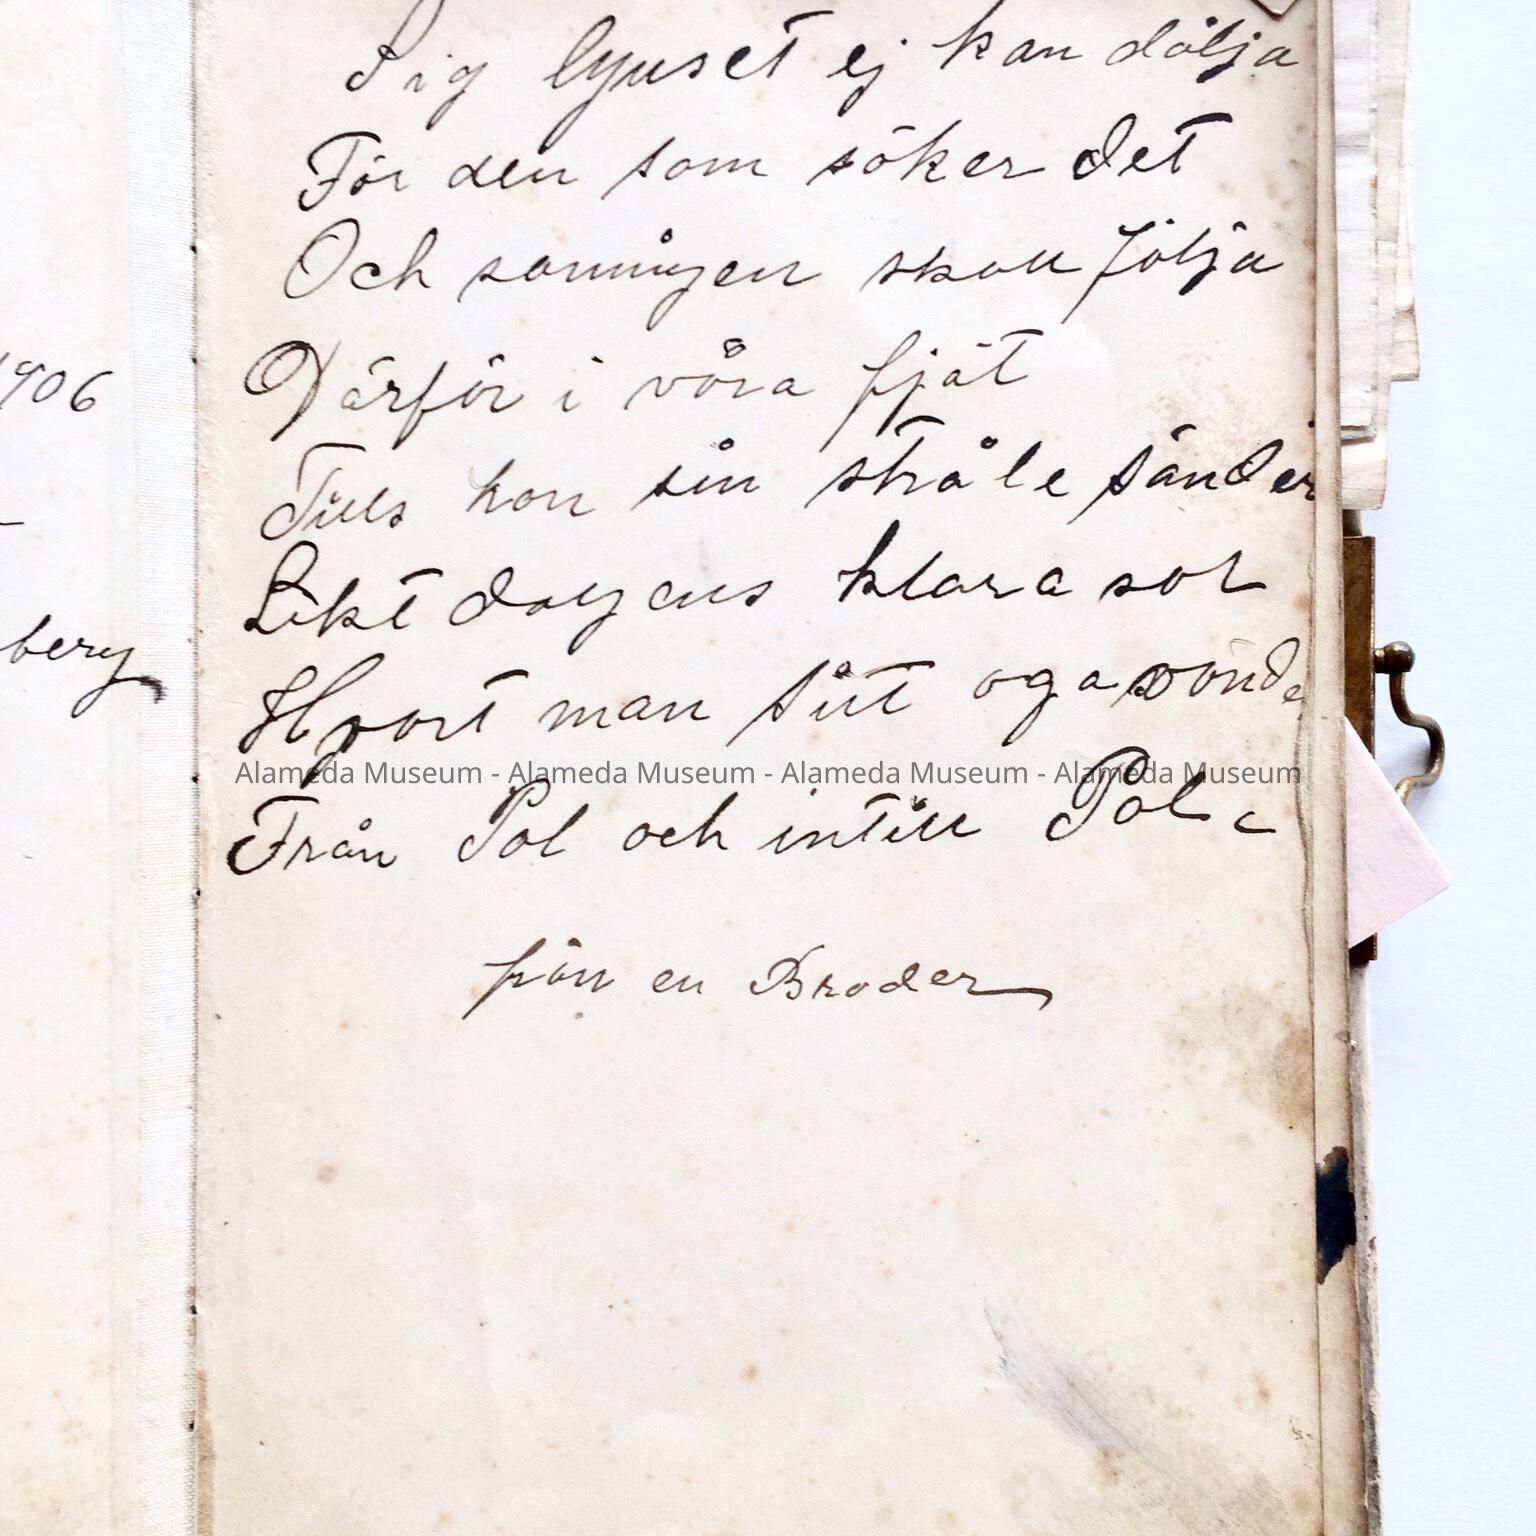 Sig ljuset ej kan dölja
För den som söker det
Och sanningen skall följa
Därför i våra fjät
Tills hon sin stråle sänder
Likt dagens klara sol
Hvart man sitt öga vänder
Från Pol och intill Pol
från en Broder
1906
berg
Alameda Museum - Alameda Museum - Alameda Museum - Alameda Museum